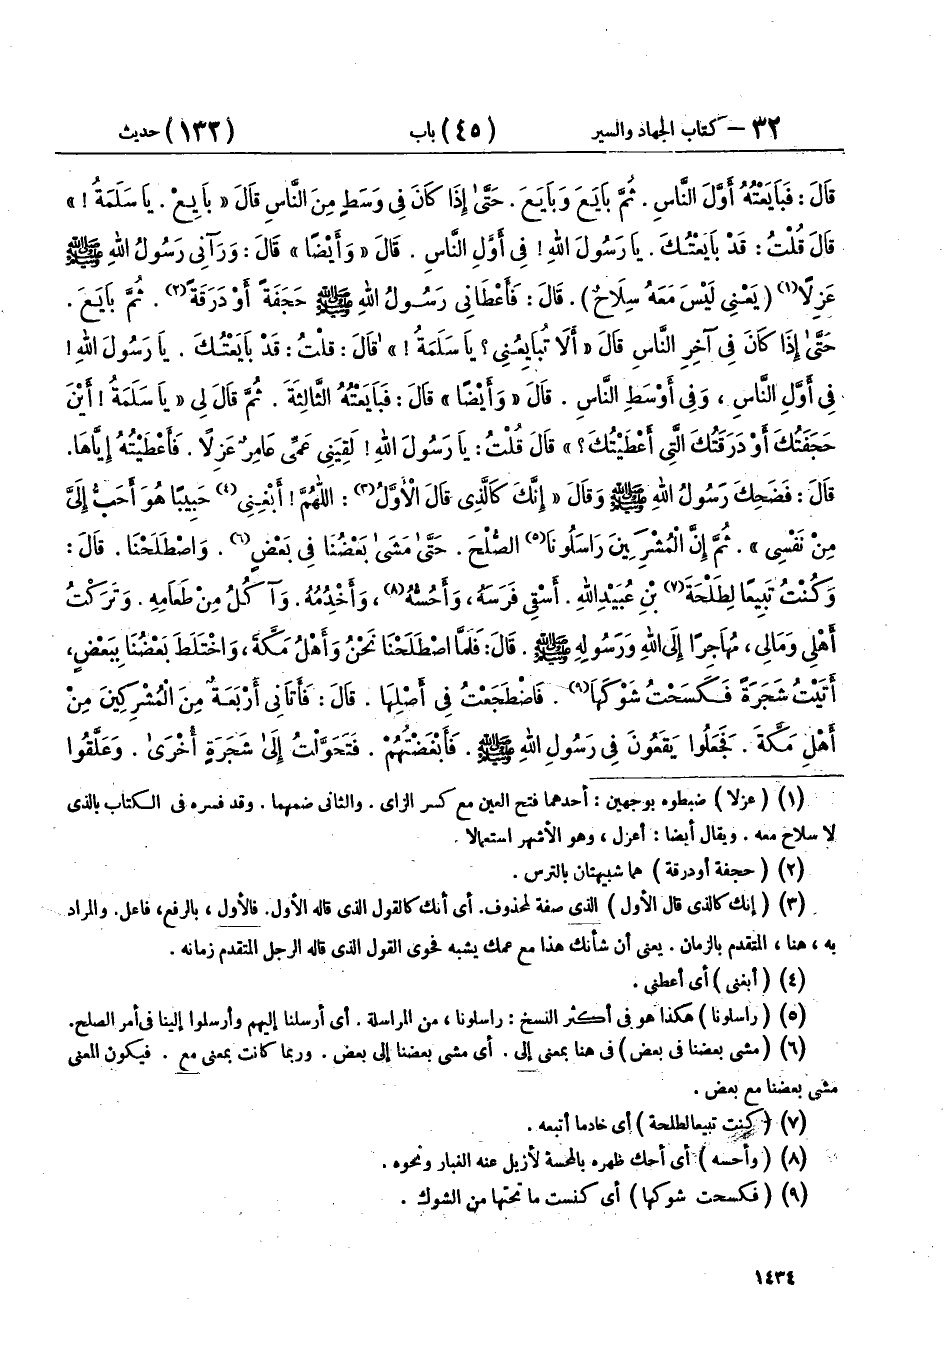 ٣٢ – كتاب الجهاد والسير (٤٥) باب (١٣٢) حديث
قَالَ : فَبَايَعْتُهُ أَوَّلَ النَّاسِ . ثُمَّ بَايَعَ وَبَايَعَ . حَتَّىٰ إِذَا كَانَ فِى وَسَطٍ مِنَ النَّاسِ قَالَ « بَايِعْ . يَا سَلَمَةُ ! »
قَالَ قُلْتُ : قَدْ بَايَعْتُكَ . يَا رَسُولَ اللهِ ! فِى أَوَّلِ النَّاسِ . قَالَ « وَأَيْضًا » قَالَ : وَرَآنِى رَسُولُ اللهِ ﷺ
عَزِلًا(١) ( يَعْنِى لَيْسَ مَعَهُ سِلَاحٌ ) . قَالَ : فَأَعْطَانِى رَسُولُ اللهِ ﷺ حَجَفَةً أَوْ دَرَقَةً(٢) . ثُمَّ بَايَعَ .
حَتَّىٰ إِذَا كَانَ فِى آخِرِ النَّاسِ قَالَ « أَلَا تُبَايِعُنِى ؟ يَا سَلَمَةُ ! » قَالَ : قلتُ : قَدْ بَايَعْتُكَ . يَا رَسُولَ اللهِ !
فِى أَوَّلِ النَّاسِ ، وَفِى أَوْسَطِ النَّاسِ . قَالَ « وَأَيْضًا » قَالَ : فَبَايَعْتُهُ الثَّالِثَةَ . ثُمَّ قَالَ لِى « يَا سَلَمَةُ ! أَيْنَ
حَجَفَتُكَ أَوْ دَرَقَتُكَ الَّتِى أَعْطَيْتُكَ ؟ » قَالَ قُلْتُ : يَا رَسُولَ اللهِ ! لَقِيَنِى عَمِّى عَامِرٌ عَزِلًا . فَأَعْطَيْتُهُ إِيَّاهَا.
قَالَ : فَضَحِكَ رَسُولُ اللهِ ﷺ وَقَالَ « إِنَّكَ كَالَّذِى قَالَ الْأَوَّلُ(٣) : اللّٰهُمَّ ! أَبْغِنِى(٤) حَبِيبًا هُوَ أَحَبُّ إِلَىَّ
مِنْ نَفْسِى » . ثُمَّ إِنَّ الْمُشْرِكِينَ رَاسَلُونَا(٥) الصُّلْحَ . حَتَّىٰ مَشَىٰ بَعْضُنَا فِى بَعْضٍ(٦) . وَاصْطَلَحْنَا . قَالَ :
وَكُنْتُ تَبِيعًا لِطَلْحَةَ(٧) بْنِ عُبَيْدِاللهِ . أَسْقِى فَرَسَهُ ، وَأَحُسُّهُ(٨) ، وَأَخْدُمُهُ . وَآكُلُ مِنْ طَعَامِهِ . وَتَرَكْتُ
أَهْلِى وَمَالِى ، مُهَاجِرًا إِلَى اللهِ وَرَسُولِهِ ﷺ . قَالَ: فَلَمَّا اصْطَلَحْنَا نَحْنُ وَأَهْلُ مَكَّةَ ، وَاخْتَلَطَ بَعْضُنَا بِبَعْضٍ،
أَتَيْتُ شَجَرَةً فَكَسَحْتُ شَوْكَهَا(٩) . فَاضْطَجَعْتُ فِى أَصْلِهَا . قَالَ : فَأَتَانِى أَرْبَعَةٌ مِنَ الْمُشْرِكِينَ مِنْ
أَهْلِ مَكَّةَ . فَجَعَلُوا يَقَعُونَ فِى رَسُولِ اللهِ ﷺ . فَأَبْغَضْتُهُمْ . فَتَحَوَّلْتُ إِلَىٰ شَجَرَةٍ أُخْرَىٰ . وَعَلَّقُوا
(١) ( عزلا ) ضبطوه بوجهين : أحدهما فتح العين مع كسر الزاى . والثانى ضمهما . وقد فسره فى الكتاب بالذى
لا سلاح معه . ويقال أيضا : أعزل ، وهو الأشهر استعمالا .
(٢) ( حجفة أو درقة ) هما شبيهتان بالترس .
(٣) ( إنك كالذى قال الأول ) الذى صفة لمحذوف. أى أنك كالقول الذى قاله الأول. فالأول ، بالرفع، فاعل. والمراد
به ، هنا ، المتقدم بالزمان . يعنى أن شأنك هذا مع عمك يشبه فحوى القول الذى قاله الرجل المتقدم زمانه .
(٤) ( أبغنى ) أى أعطنى .
(٥) ( راسلونا ) هكذا هو فى أكثر النسخ : راسلونا ، من المراسلة . أى أرسلنا إليهم وأرسلوا إلينا فى أمر الصلح.
(٦) ( مشى بعضنا فى بعض ) فى هنا بمعنى إلى . أى مشى بعضنا إلى بعض . وربما كانت بمعنى مع . فيكون المعنى
مشى بعضنا مع بعض .
(٧) ( كنت تبيعا لطلحة ) أى خادما أتبعه .
(٨) ( وأحسه ) أى أحك ظهره بالمحسة لأزيل عنه الغبار ونحوه .
(٩) ( فكسحت شوكها ) أى كنست ما تحتها من الشوك .
١٤٣٤